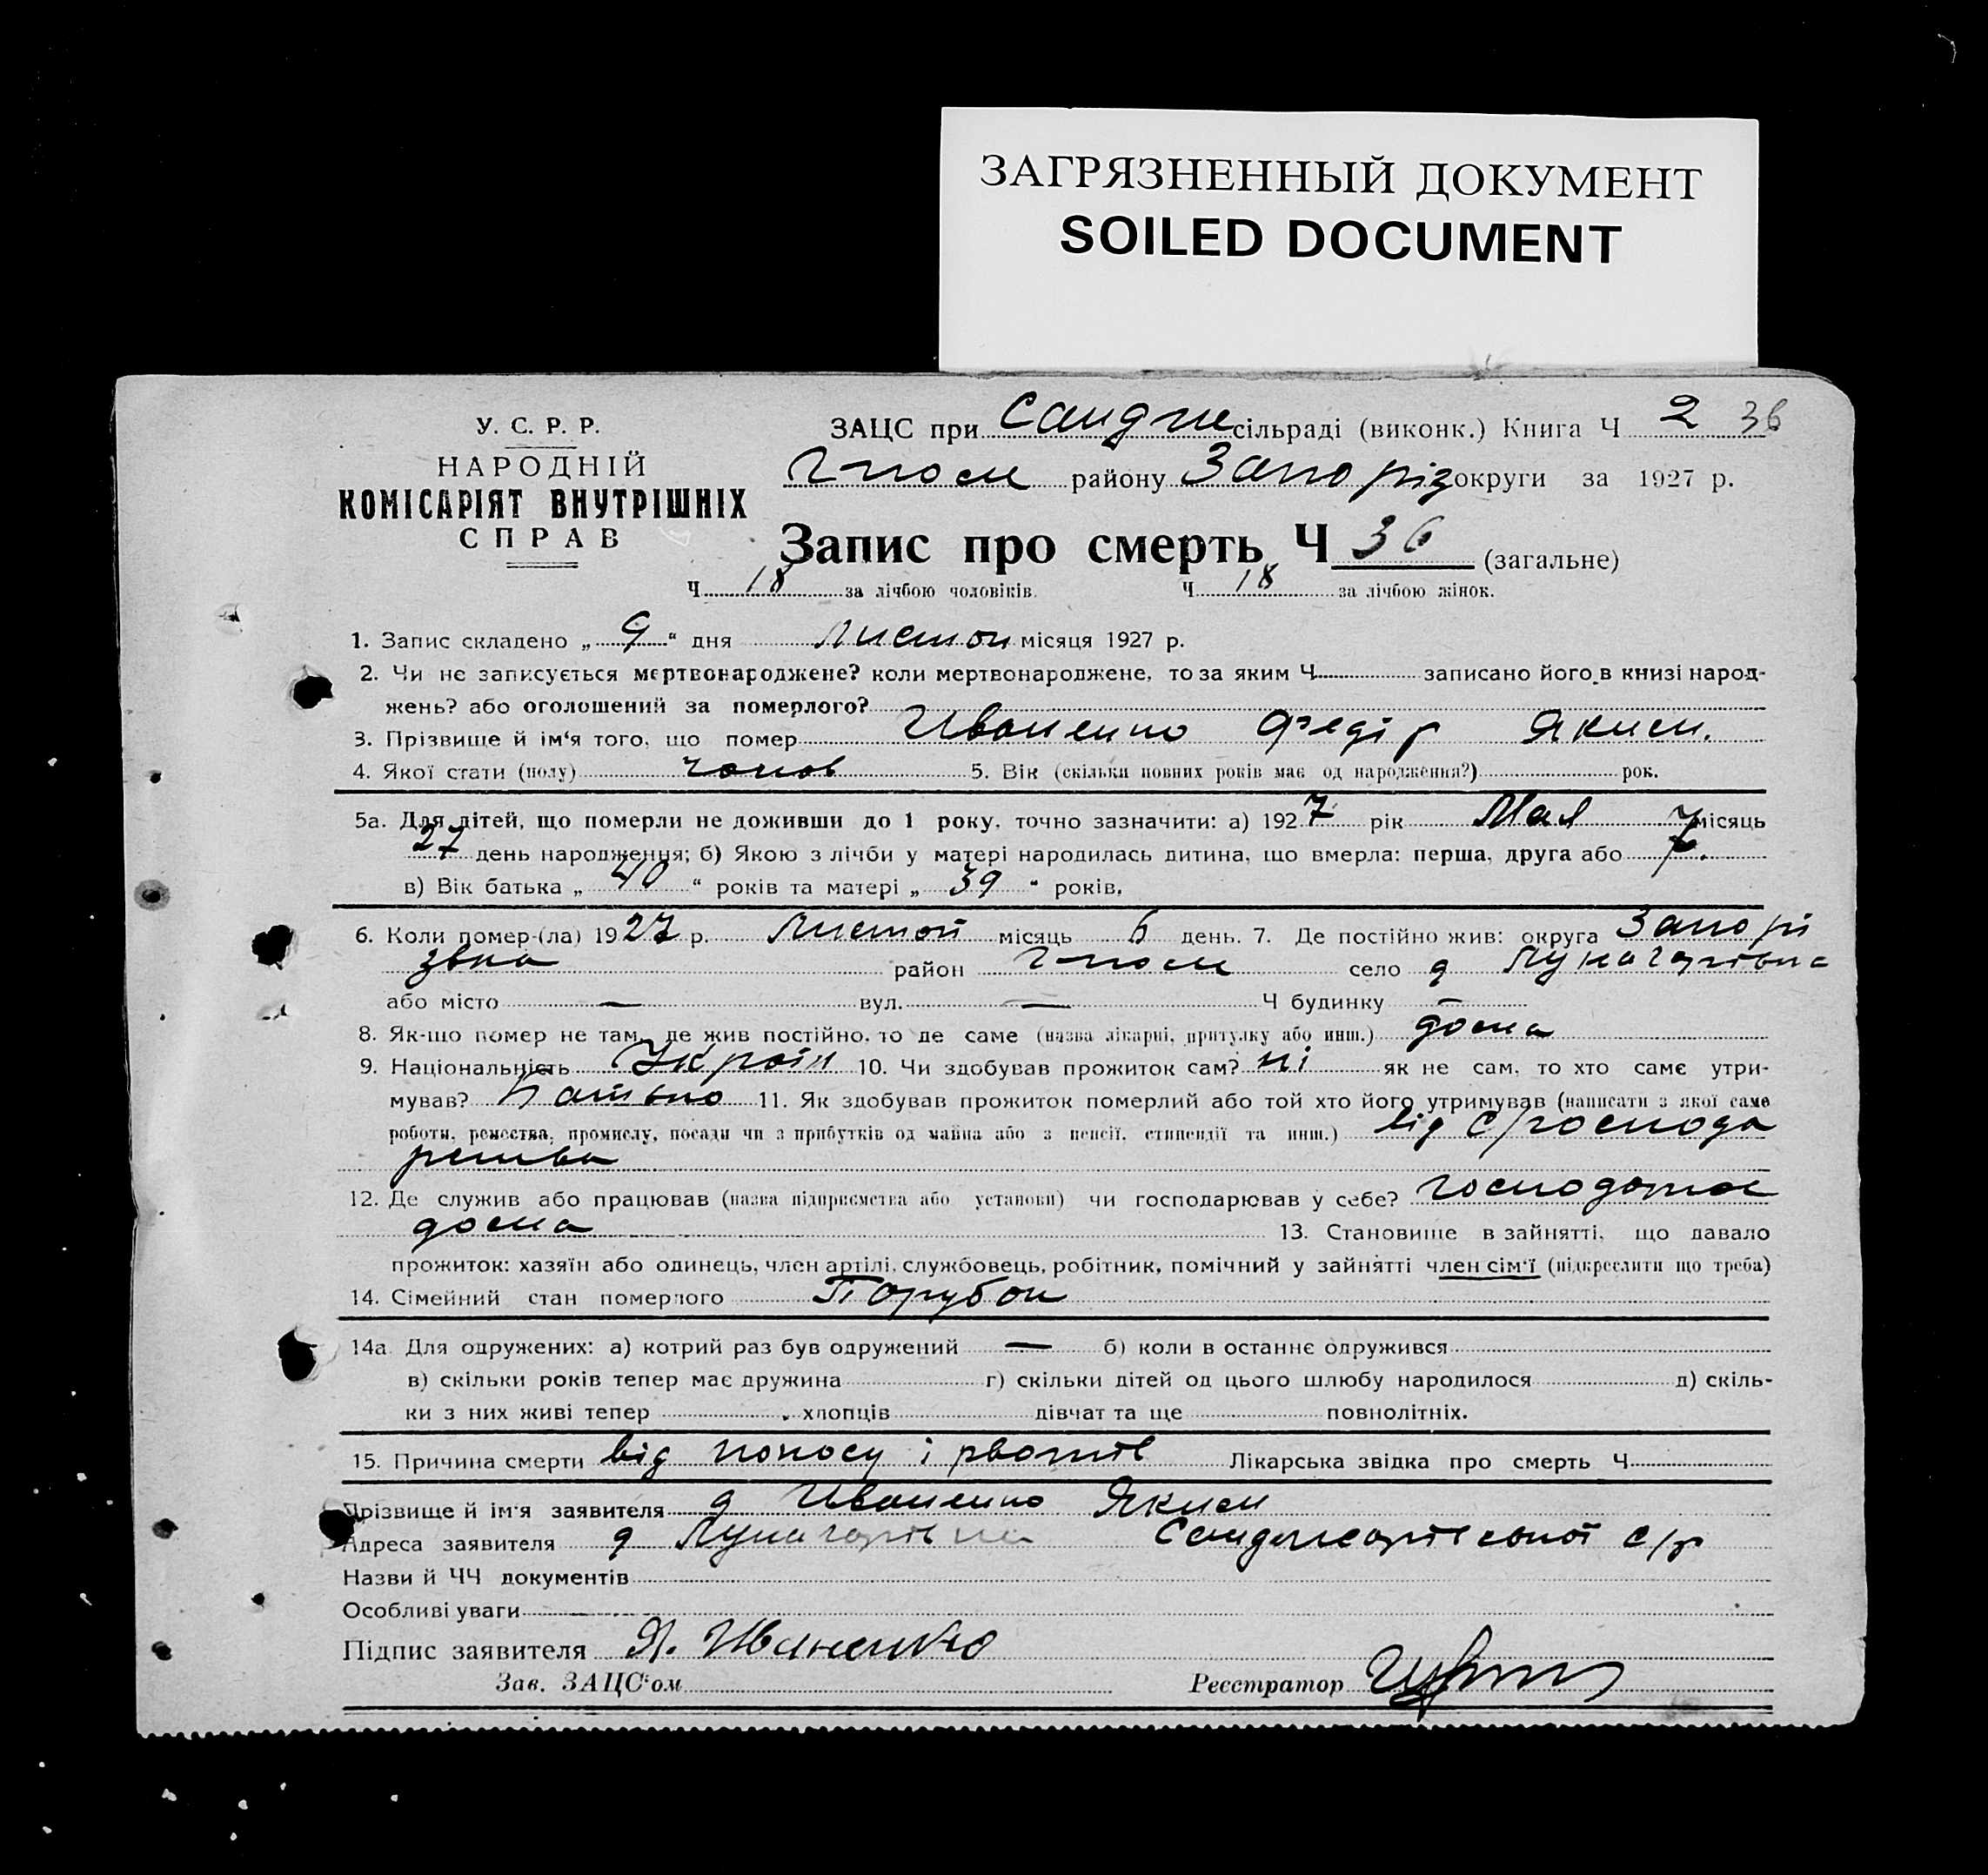 ЗАГРЯЗНЕННЫЙ ДОКУМЕНТ
SOILED DOCUMENT
У. С. Р. Р.
НАРОДНІЙ
КОМІСАРІЯТ ВНУТРІШНІХ
СПРАВ
ЗАЦС при сільраді (виконк.) Книга Ч 2 36
району Запоріз округи за 1927 р.
Запис про смерть Ч 36 (загальне)
Ч 18 за лічбою чоловіків. Ч 18 за лічбою жінок.
1. Запис складено „ 9 “ дня Листоп місяця 1927 р.
2. Чи не записується мертвонароджене? коли мертвонароджене, то за яким Ч записано його в книзі народ-
жень? або оголошений за померлого?
3. Прізвище й ім‘я того, що помер Иваненко Федір Яким.
4. Якої стати (полу) чолов 5. Вік (скільки повних років має од народження?) рок.
5а. Для дітей, що померли не доживши до 1 року, точно зазначити: а) 1927 рік Мая місяць
27 день народження; б) Якою з лічби у матері народилась дитина, що вмерла: перша, друга або 7.
в) Вік батька „ 40 “ років та матері „ 39 “ років.
6. Коли помер-(ла) 1927 р. Листоп місяць 6 день. 7. Де постійно жив: округа Запорі
зька район село д Луначарівка
або місто — вул. — Ч будинку —
8. Як-що помер не там, де жив постійно, то де саме (назва лікарні, притулку або инш.) дома
9. Національність Україн 10. Чи здобував прожиток сам? ні як не сам, то хто саме утри-
мував? Батько 11. Як здобував прожиток померлий або той хто його утримував (написати з якої саме
роботи, ремества, промислу, посади чи з прибутків од майна або з пенсії, стипендії та инш.) від С/господа
рства
12. Де служив або працював (назва підприємства або установи) чи господарював у себе?
дома 13. Становище в зайнятті, що давало
прожиток: хазяїн або одинець, член артілі, службовець, робітник, помічний у зайнятті член сім‘ї (підкреслити що треба)
14. Сімейний стан померлого Парубок
14а. Для одружених: а) котрий раз був одружений — б) коли в останнє одружився
в) скільки років тепер має дружина г) скільки дітей од цього шлюбу народилося д) скіль-
ки з них живі тепер хлопців дівчат та ще повнолітніх.
15. Причина смерти від поносу і рвотів Лікарська звідка про смерть Ч
Прізвище й ім‘я заявителя д Иваненко Яким
Адреса заявителя д Луначарівка с/р
Назви й ЧЧ документів
Особливі уваги
Підпис заявителя Я. Иваненко
Зав. ЗАЦС‘ом Реєстратор